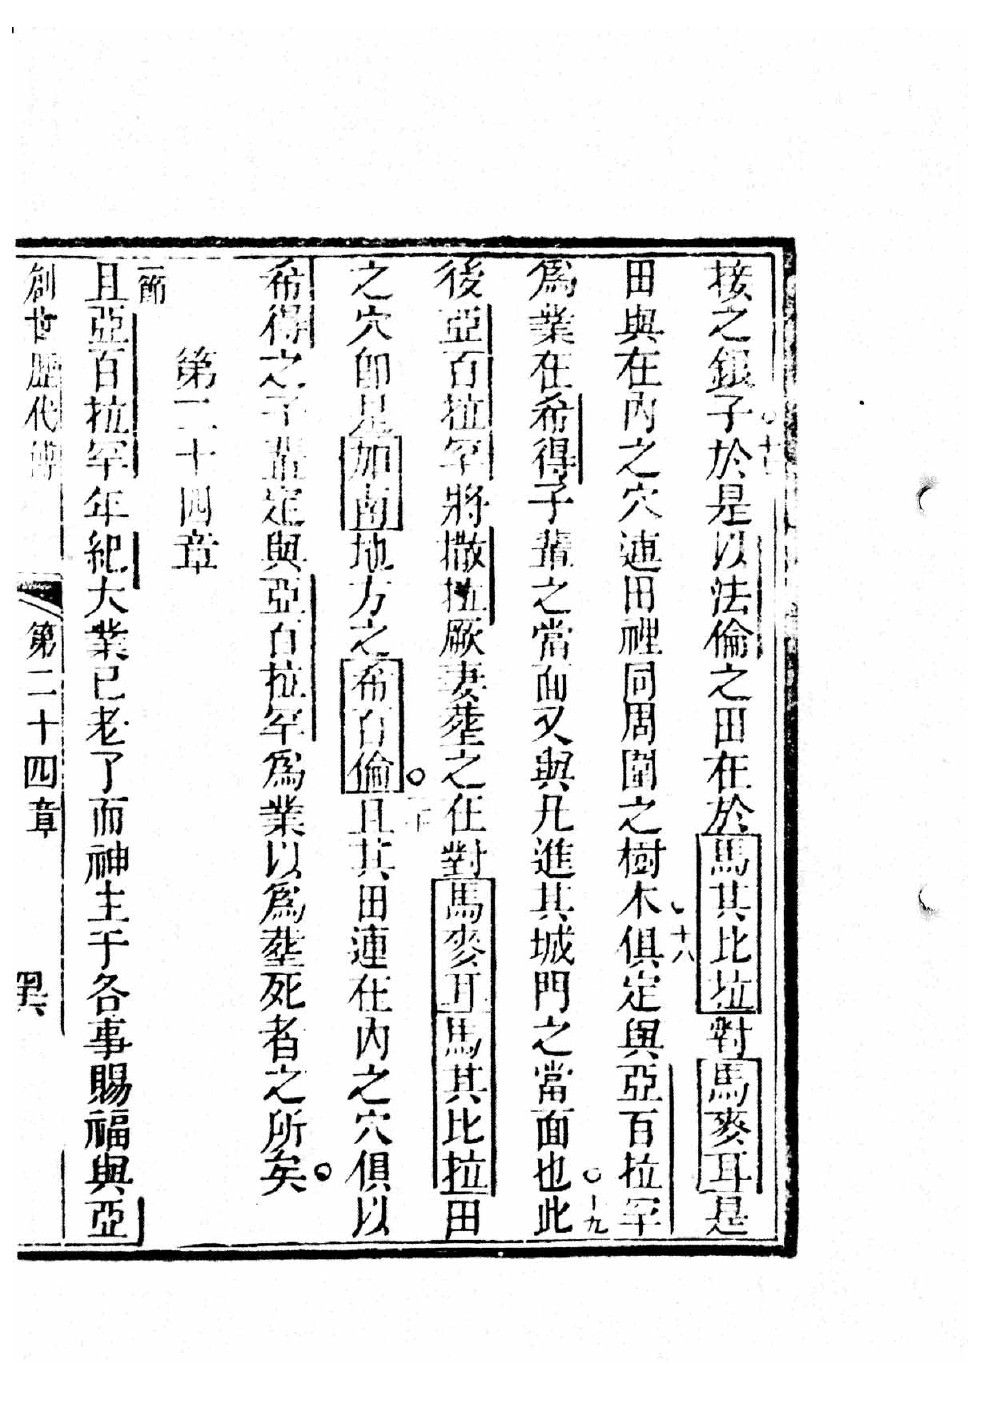 接之銀子於是以法倫之田在於馬其比拉對馬麥耳是
十七
田與在內之穴連田裡同周圍之樹木俱定與亞百拉罕
十八
爲業在希得子輩之當面又與凡進其城門之當面也此
十九
後亞百拉罕將撒拉厥妻塟之在對馬麥耳馬其比拉田
之穴卽是加南地方之希百倫且其田連在內之穴俱以
二十
希得之子輩定與亞百拉罕爲業以爲塟死者之所矣
第二十四章
一節
且亞百拉罕年紀大業已老了而神主于各事賜福與亞
創世歷代傳
第二十四章